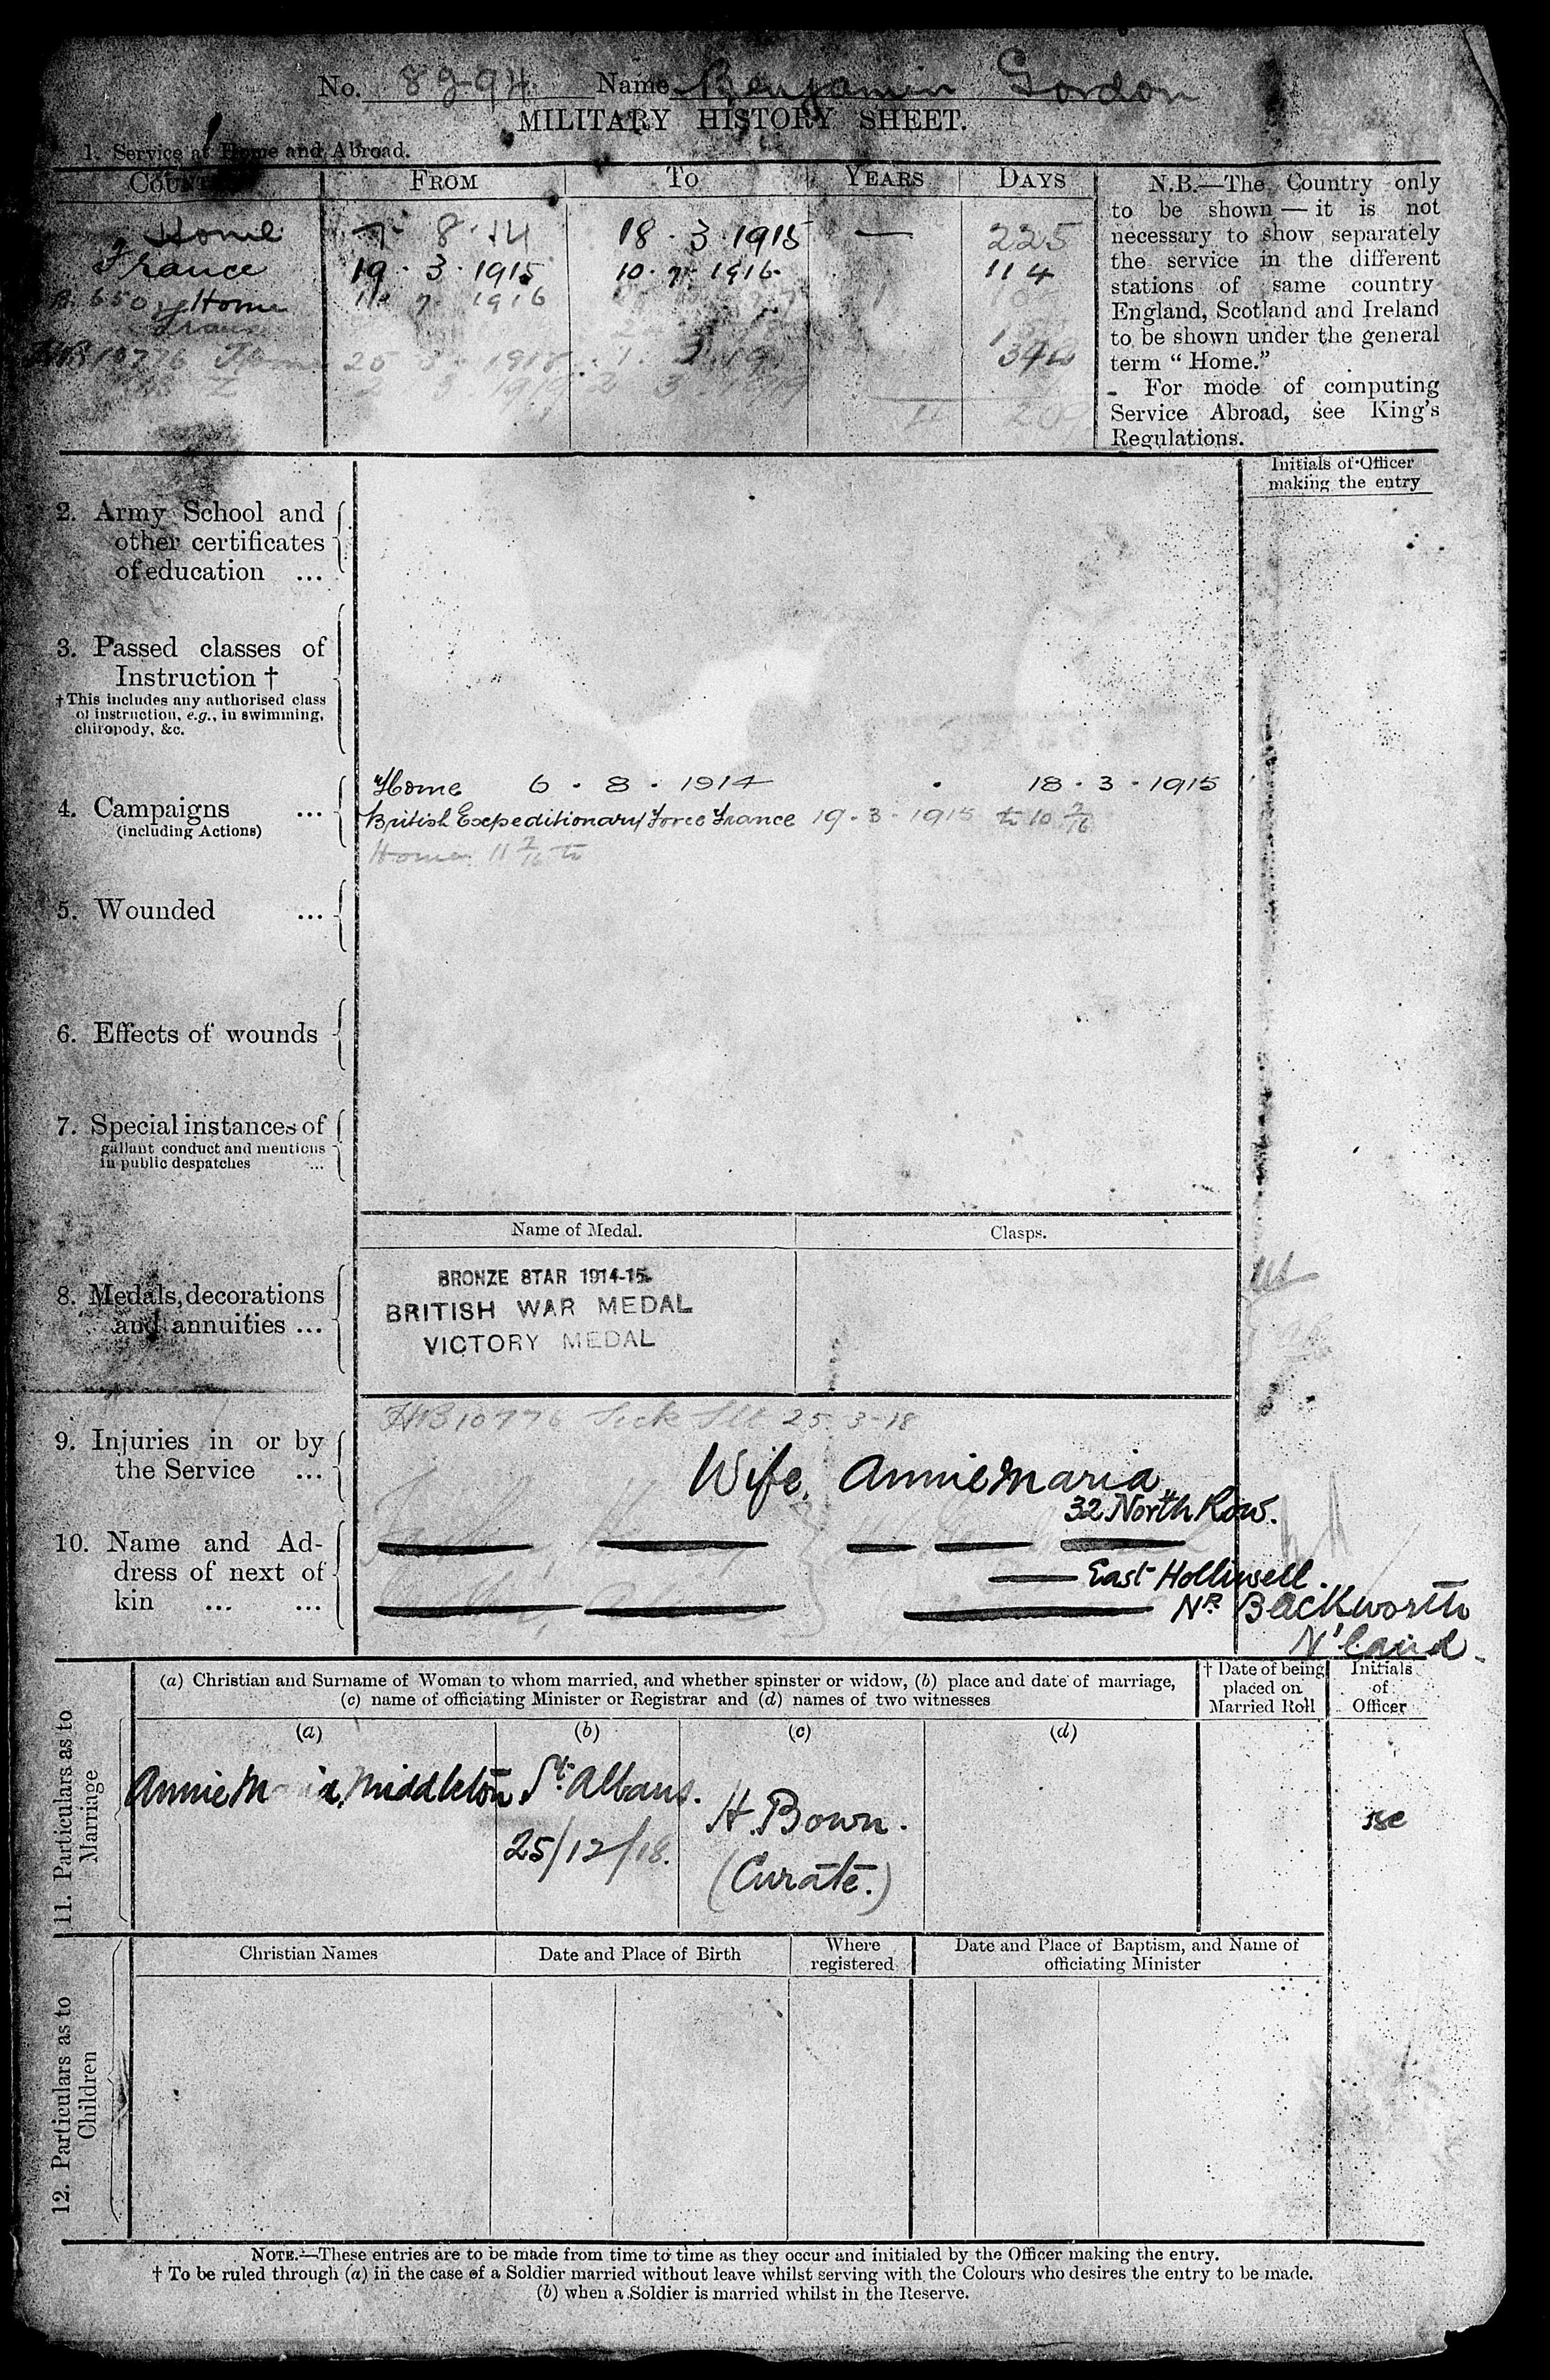 No. 8294 Name Benjamin Gordon
MILITARY HISTORY SHEET.
1. Service at Home and Abroad.
COUNTRY FROM TO YEARS DAYS
Home 7 8.14 18.3.1915 — 225
France 19.3.1915 10.7.1916. 114
B. 650 Home 11 7 1916 1
France
HB 10776 Home 25 3 1918 1. 3. 19. 342
2 3 1919 2 3 1919
209
N.B.—The Country only
to be shown — it is not
necessary to show separately
the service in the different
stations of same country
England, Scotland and Ireland
to be shown under the general
term “Home.”
For mode of computing
Service Abroad, see King's
Regulations.
Initials of Officer
making the entry
2. Army School and
other certificates
of education ...
3. Passed classes of
Instruction †
†This includes any authorised class
of instruction, e.g., in swimming,
chiropody, &c.
4. Campaigns ...
(including Actions)
Home 6.8.1914 . 18.3.1915
British Expeditionary Force France 19.3.1915 to 10 7/16
Home 11 7/16 to
5. Wounded ...
6. Effects of wounds
7. Special instances of
gallant conduct and mentions
in public despatches ...
Name of Medal. Clasps.
8. Medals, decorations
and annuities ...
BRONZE STAR 1914-15
BRITISH WAR MEDAL
VICTORY MEDAL
9. Injuries in or by
the Service ...
HB 10776 Sick 25-3-18
10. Name and Ad-
dress of next of
kin ... ...
Wife, Annie Maria
32 North Row.
East Holliwell.
Nr. Backworth
N'land.
11. Particulars as to
Marriage
(a) Christian and Surname of Woman to whom married, and whether spinster or widow, (b) place and date of marriage,
(c) name of officiating Minister or Registrar and (d) names of two witnesses
† Date of being
placed on
Married Roll
Initials
of
Officer
(a) (b) (c) (d)
Annie M ia Middleton St. Albans.
25/12/18.
H. Bown.
(Curate.)
12. Particulars as to
Children
Christian Names
Date and Place of Birth
Where
registered
Date and Place of Baptism, and Name of
officiating Minister
NOTE.—These entries are to be made from time to time as they occur and initialed by the Officer making the entry.
† To be ruled through (a) in the case of a Soldier married without leave whilst serving with the Colours who desires the entry to be made.
(b) when a Soldier is married whilst in the Reserve.